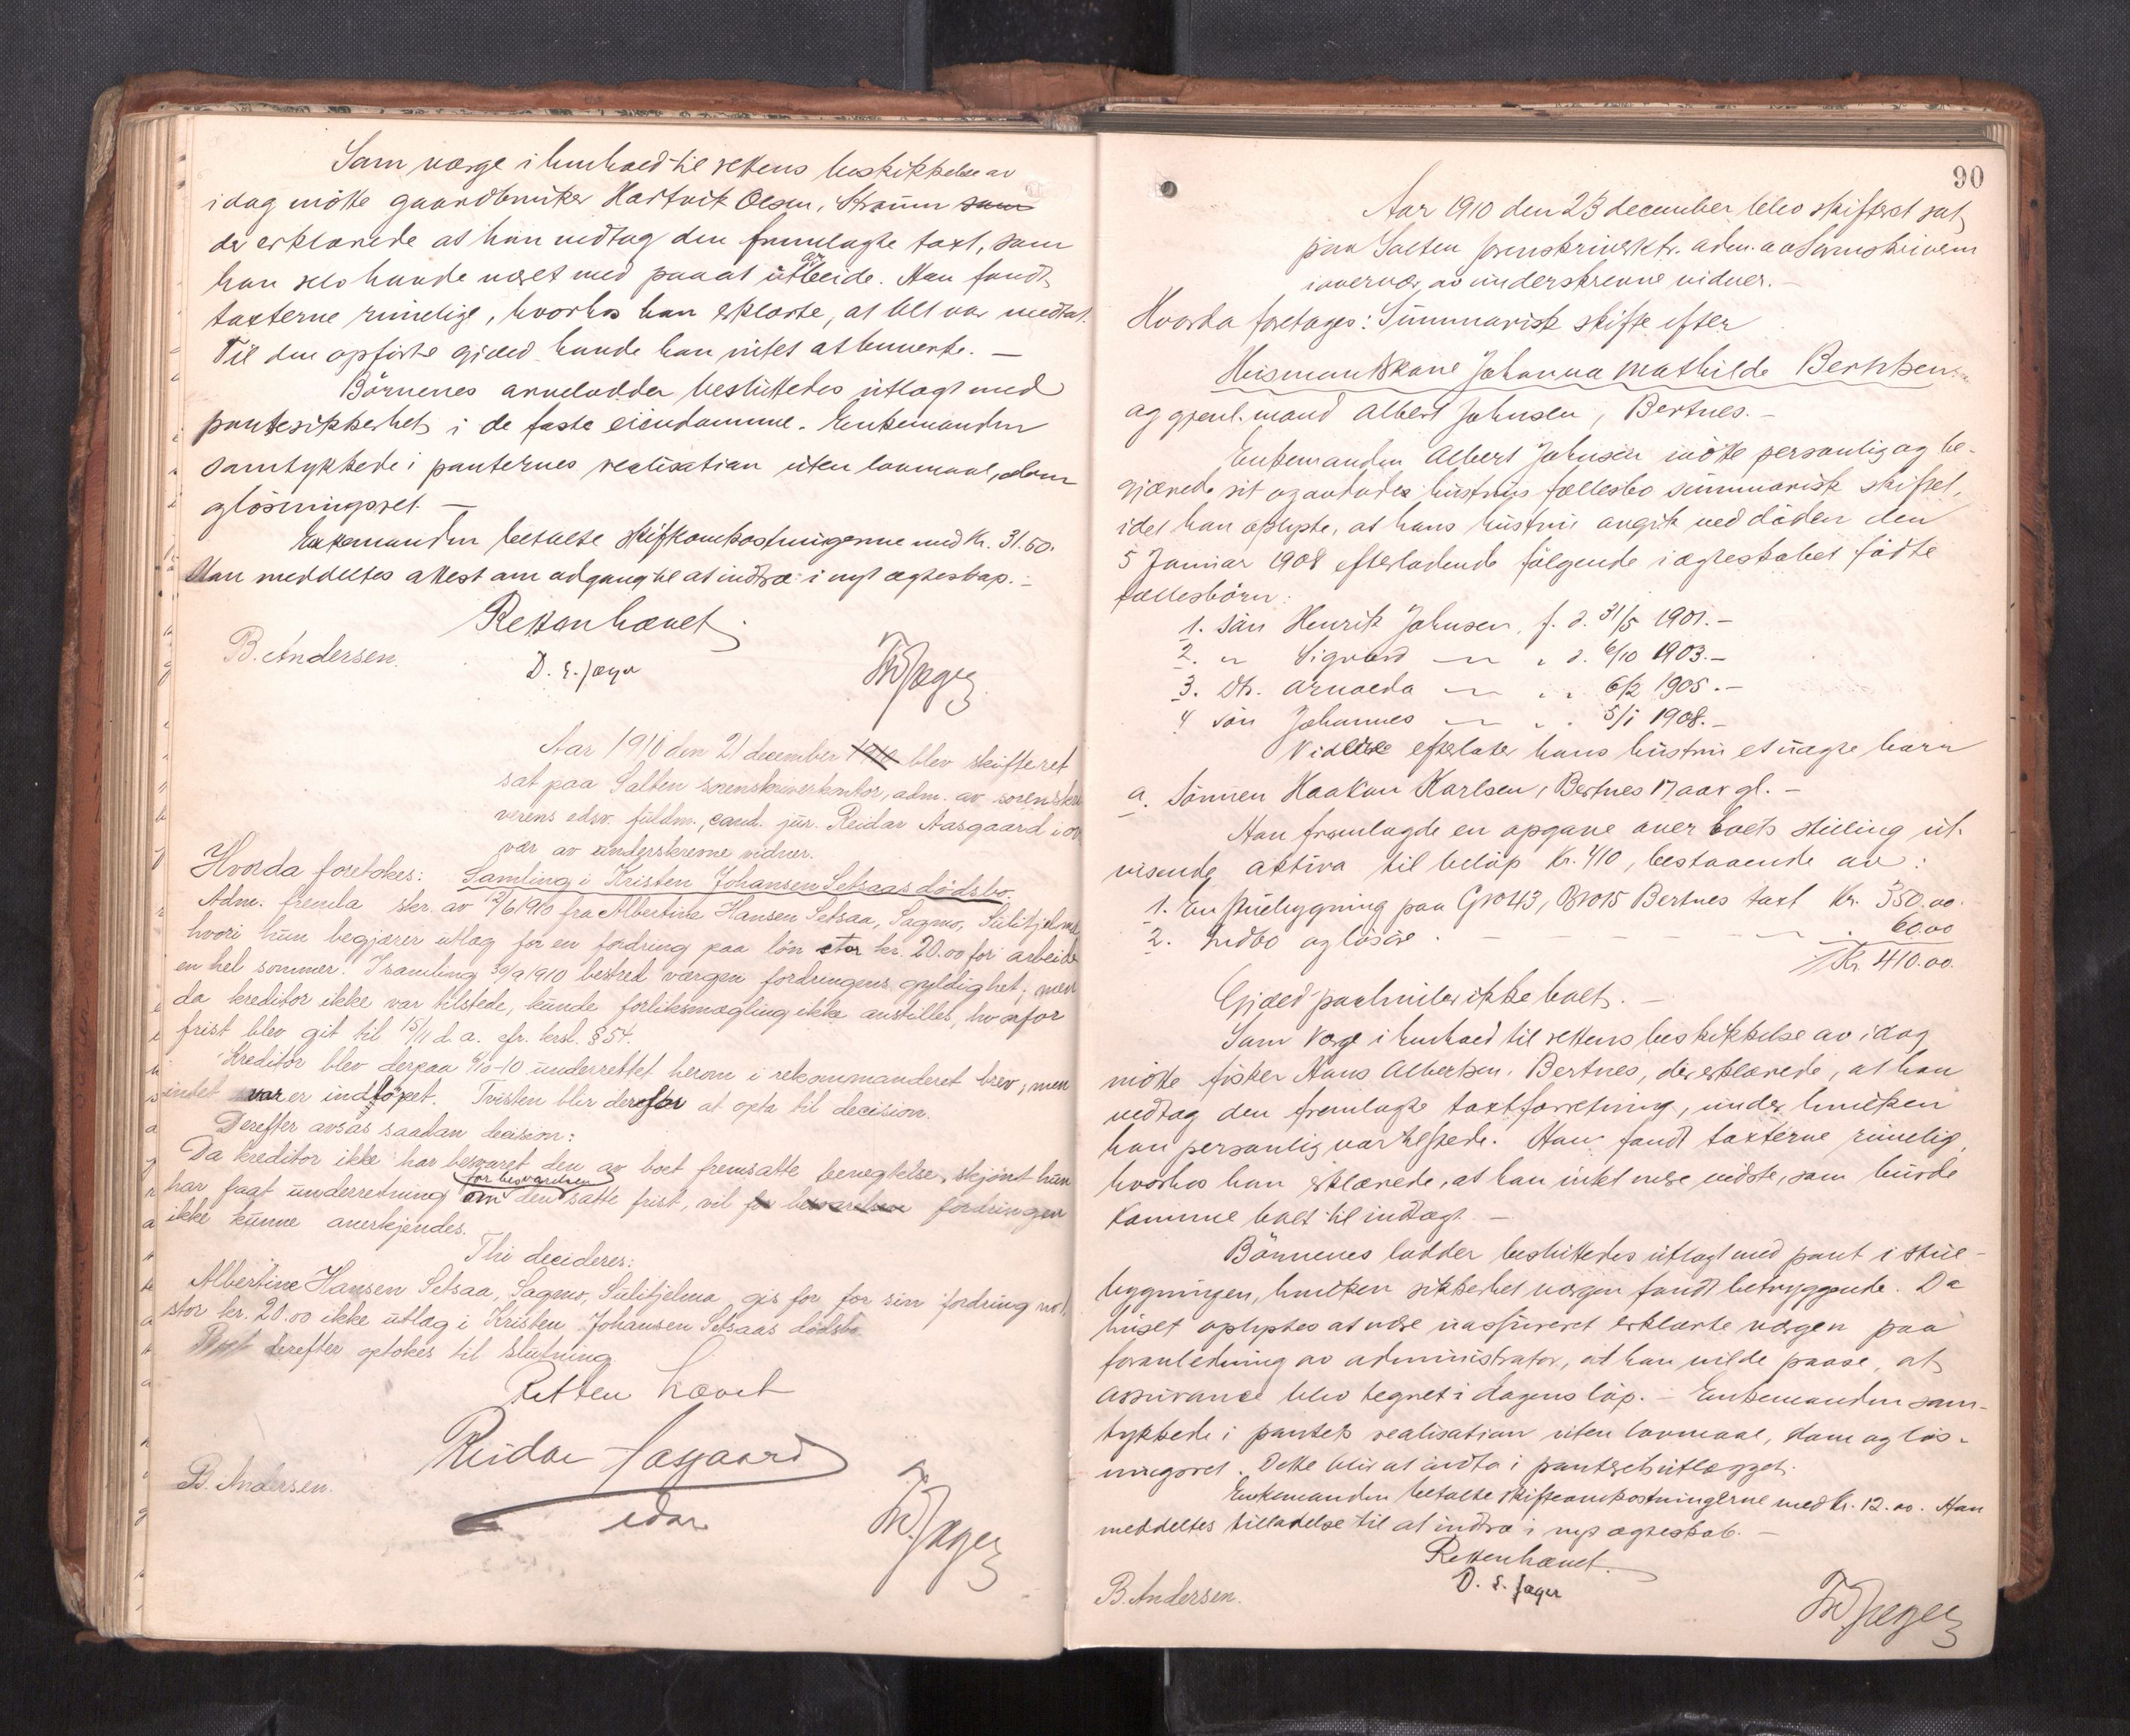 Som værge i henhold til rettens beskikkelse av
idag mötte gaardbruker Hartvik Olsen, Straum som
der erklærede at han vedtog den fremlagte taxt, som
han selv havde været med paa at utarbeide. Han fandt
taxterne rimelige, hvorhos han erklærte, at alt var medtat.
Til den opförte gjæld havde han intet at bemerke. —
Börnenes arvelodder besluttedes utlagt med
pantesikkerhet i de faste eiendomme. Enkemanden
samtykkede i panternes realisation uten lovmaal, dom
oglösningsret. —
Enkemanden betalte skifteomkostningerne med Kr. 31.60.
Han meddeltes attest om adgang til at indtræ i nyt ægteskap. —
Retten hævet.
B. Andersen. D. E. Jæger ThJæger
Aar 1910 den 21 december 1910 blev skifteret
sat paa Salten sorenskriverkontor, adm. av sorenskri
verens edsv. fuldm., cand. jur. Reidar Aasgaard i over
vær av underskrevne vidner.
Hvorda foretokes: Samling i Kristen Johansen Setsaas dödsbo.
Adm. fremla skr. av 12/6 1910 fra Albertine Hansen Setsaa, Sagmo, Sulitjelma,
hvori hun begjærer utlæg for en fordring paa lön stor kr. 20.00 for arbeide
en hel sommer. I samling 30/9 1910 bestred værgen fordringens gyldighet; men
da kreditor ikke var tilstede, kunde forliksmægling ikke anstilles, hvorfor
frist blev git til 15/11 d. a. cfr. krsl. § 54.
Kreditor blev derpaa 6/10-10 underrettet herom i rekommanderet brev; men
intet svar er indlöpet. Tvisten blir derfor at opta til decision.
Derefter avsas saadan decision:
Da kreditor ikke har besvaret den av boet fremsatte benegtelse, skjönt hun
har faat underretning om den for besvarelsen satte frist, vil for besvarelsen fordringen
ikke kunne anerkjendes.
Thi decideres:
Albertine Hansen Setsaa, Sagmo, Sulitjelma gis for for sin fordring
stor kr. 20.00 ikke utlæg i Kristen Johansen Setsaas dödsbo.
Boet derefter optokes til slutning.
Retten hævet
Reidar Aasgaard
B. Andersen. edsv ThJæger
90
Aar 1910 den 23 december blev skifteret sat
paa Salten sorenskriverktr. adm. av Sorenskriveren
i overvær av underskrevne vidner. —
Hvorda foretages: Summarisk skifte efter
Husmandskone Johanna Mathilde Berntsen
og gjenl. mand Albert Johnsen, Bertnes. —
Enkemanden Albert Johnsen mötte personlig og be-
gjærede sit og avdödes hustrus fællesbo summarisk skiftet,
idet han oplyste, at hans hustru avgik ved döden den
5 Januar 1908 efterladende fölgende i ægteskabet födte
fællesbörn:
1. Sön Henrik Johnsen, f. d. 31/5 1901. —
2. " Sigvard — " — " d. 6/10 1903. —
3. Dtr. Arnolda — " — " " 6/2 1905. —
4 Sön Johannes — " — " " 5/1 1908. —
Videre efterlater hans hustru et uægte barn
a. Sönnen Haakon Karlsen, Bertnes 17 aar gl. —
Han fremlagde en opgave over boets stilling ut-
visende aktiva til belöp Kr. 410, bestaaende av:
1. En stuebygning paa Gno 43, Bno 15 Bertnes taxt Kr. 350.00.
2. Indbo og lösöre . — — — — " . 60.00
Kr 410.00.
Gjæld paahviler ikke boet. —
Som værge i henhold til rettens beskikkelse av idag
mötte fisker Hans Albertsen, Bertnes, der erklærede, at han
vedtog den fremlagte taxtforretning, under hvilken
han personlig var tilstede. Han fandt taxterne rimelig,
hvorhos han erklærede, at han intet mere vidste, som burde
komme boet til indtægt. —
Börnenes lodder besluttedes utlagt med pant i stue-
bygningen, hvilken sikkerhet værgen fandt betryggende. Da
huset oplystes at være uassureret erklærte værgen paa
foranledning av administrator, at han vilde paase, at
assurance blev tegnet i dagens löp. — Enkemanden sam-
tykkede i pantets realisation uten lovmaal, dom og lös-
ningsret. Dette blir at indta i panteretsutlægget.
Enkemanden betalte skifteomkostningerne med Kr. 12.00. Han
meddeltes tilladelse til at indtræ i nyt ægteskab. —
Retten hævet.
B. Andersen. D. E. Jæger ThJæger